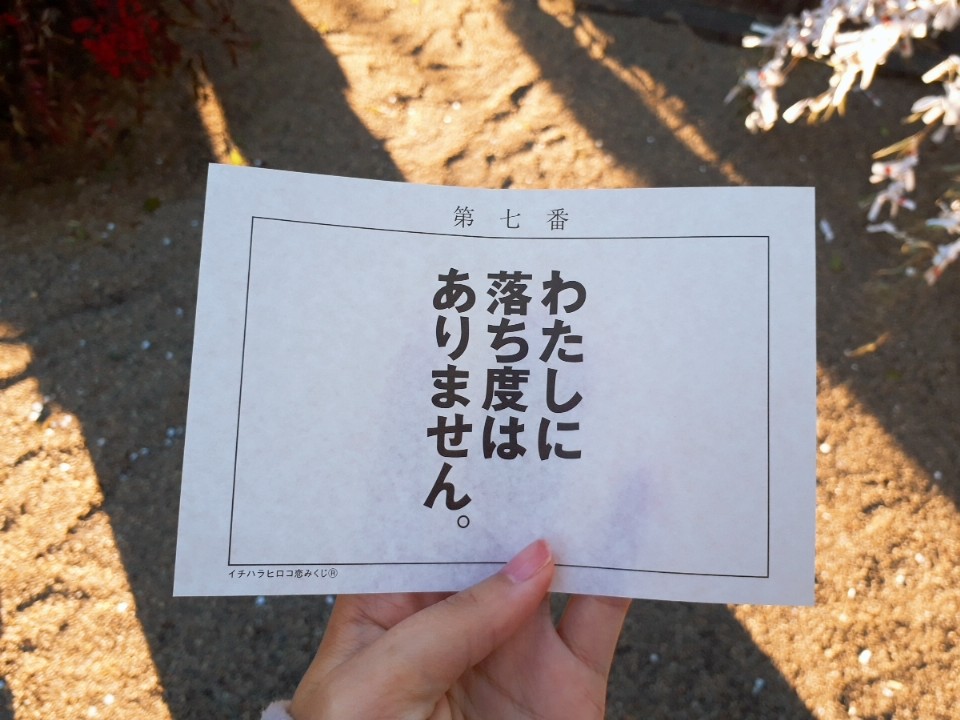 第七番
わたしに
落ち度は
ありません。
イチハラヒロコ恋みくじ®